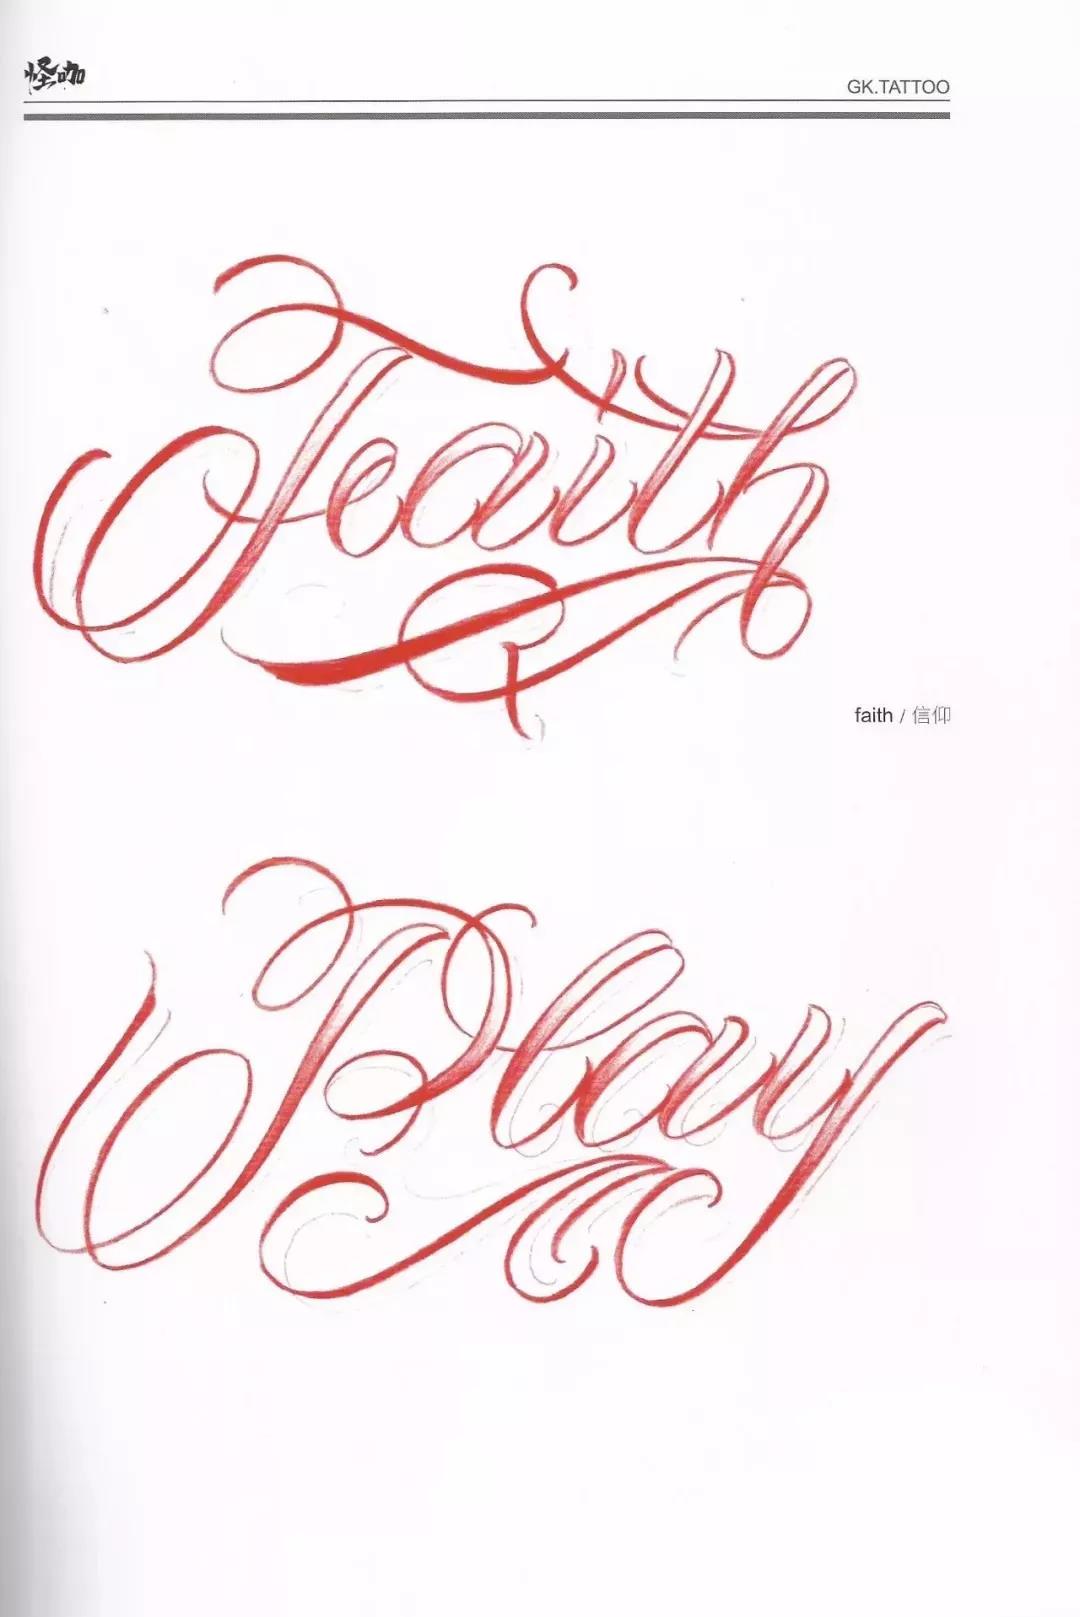 怪咖
GK.TATTOO
Faith
faith / 信仰
Play